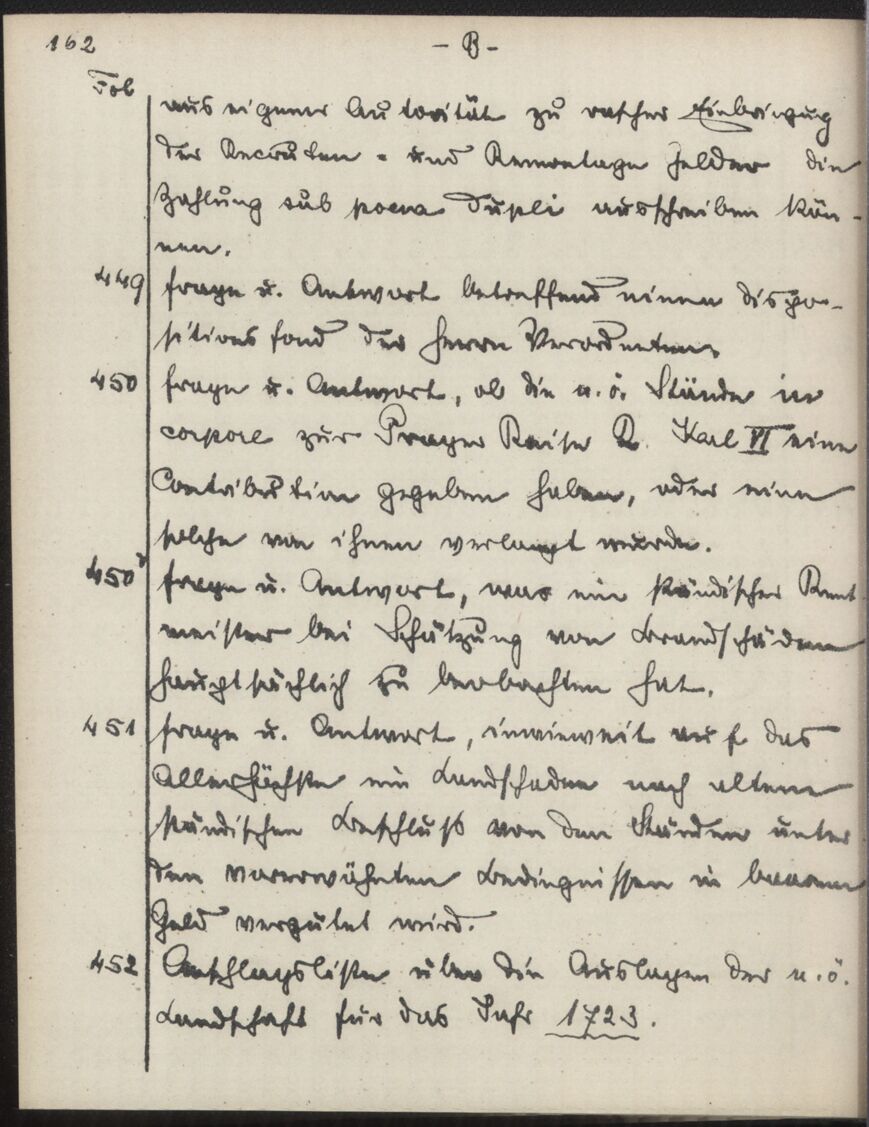 162
- B -
Fol
aus eigener Autorität zu rascher Einbringung
der Recruten- und Remontage Gelder die
Zahlung sub poena dupli ausschreiben kön-
nen.
449 Frage u. Antwort betreffend einen dispo-
sitions fond der Herrn Verordneten
450 Frage u. Antwort, ob die n. ö. Stände in
corpore zur Prager Reise K. Karl VI eine
Contribution gegeben haben, oder eine
solche von ihnen verlangt wurde.
450 Frage u. Antwort, was ein ständischer Rent-
meister bei Schätzung von Brandschäden
hauptsächlich zu beobachten hat.
451 Frage u. Antwort, inwieweit auf das
Allerhöchste ein Landschaden nach altem
ständischen Beschluss von den Ständen unter
den vorerwähnten Bedingnissen in baarem
Geld vergütet wird.
452 Anschlagsliste über die Auslagen der n. ö.
Landschaft für das Jahr 1723.